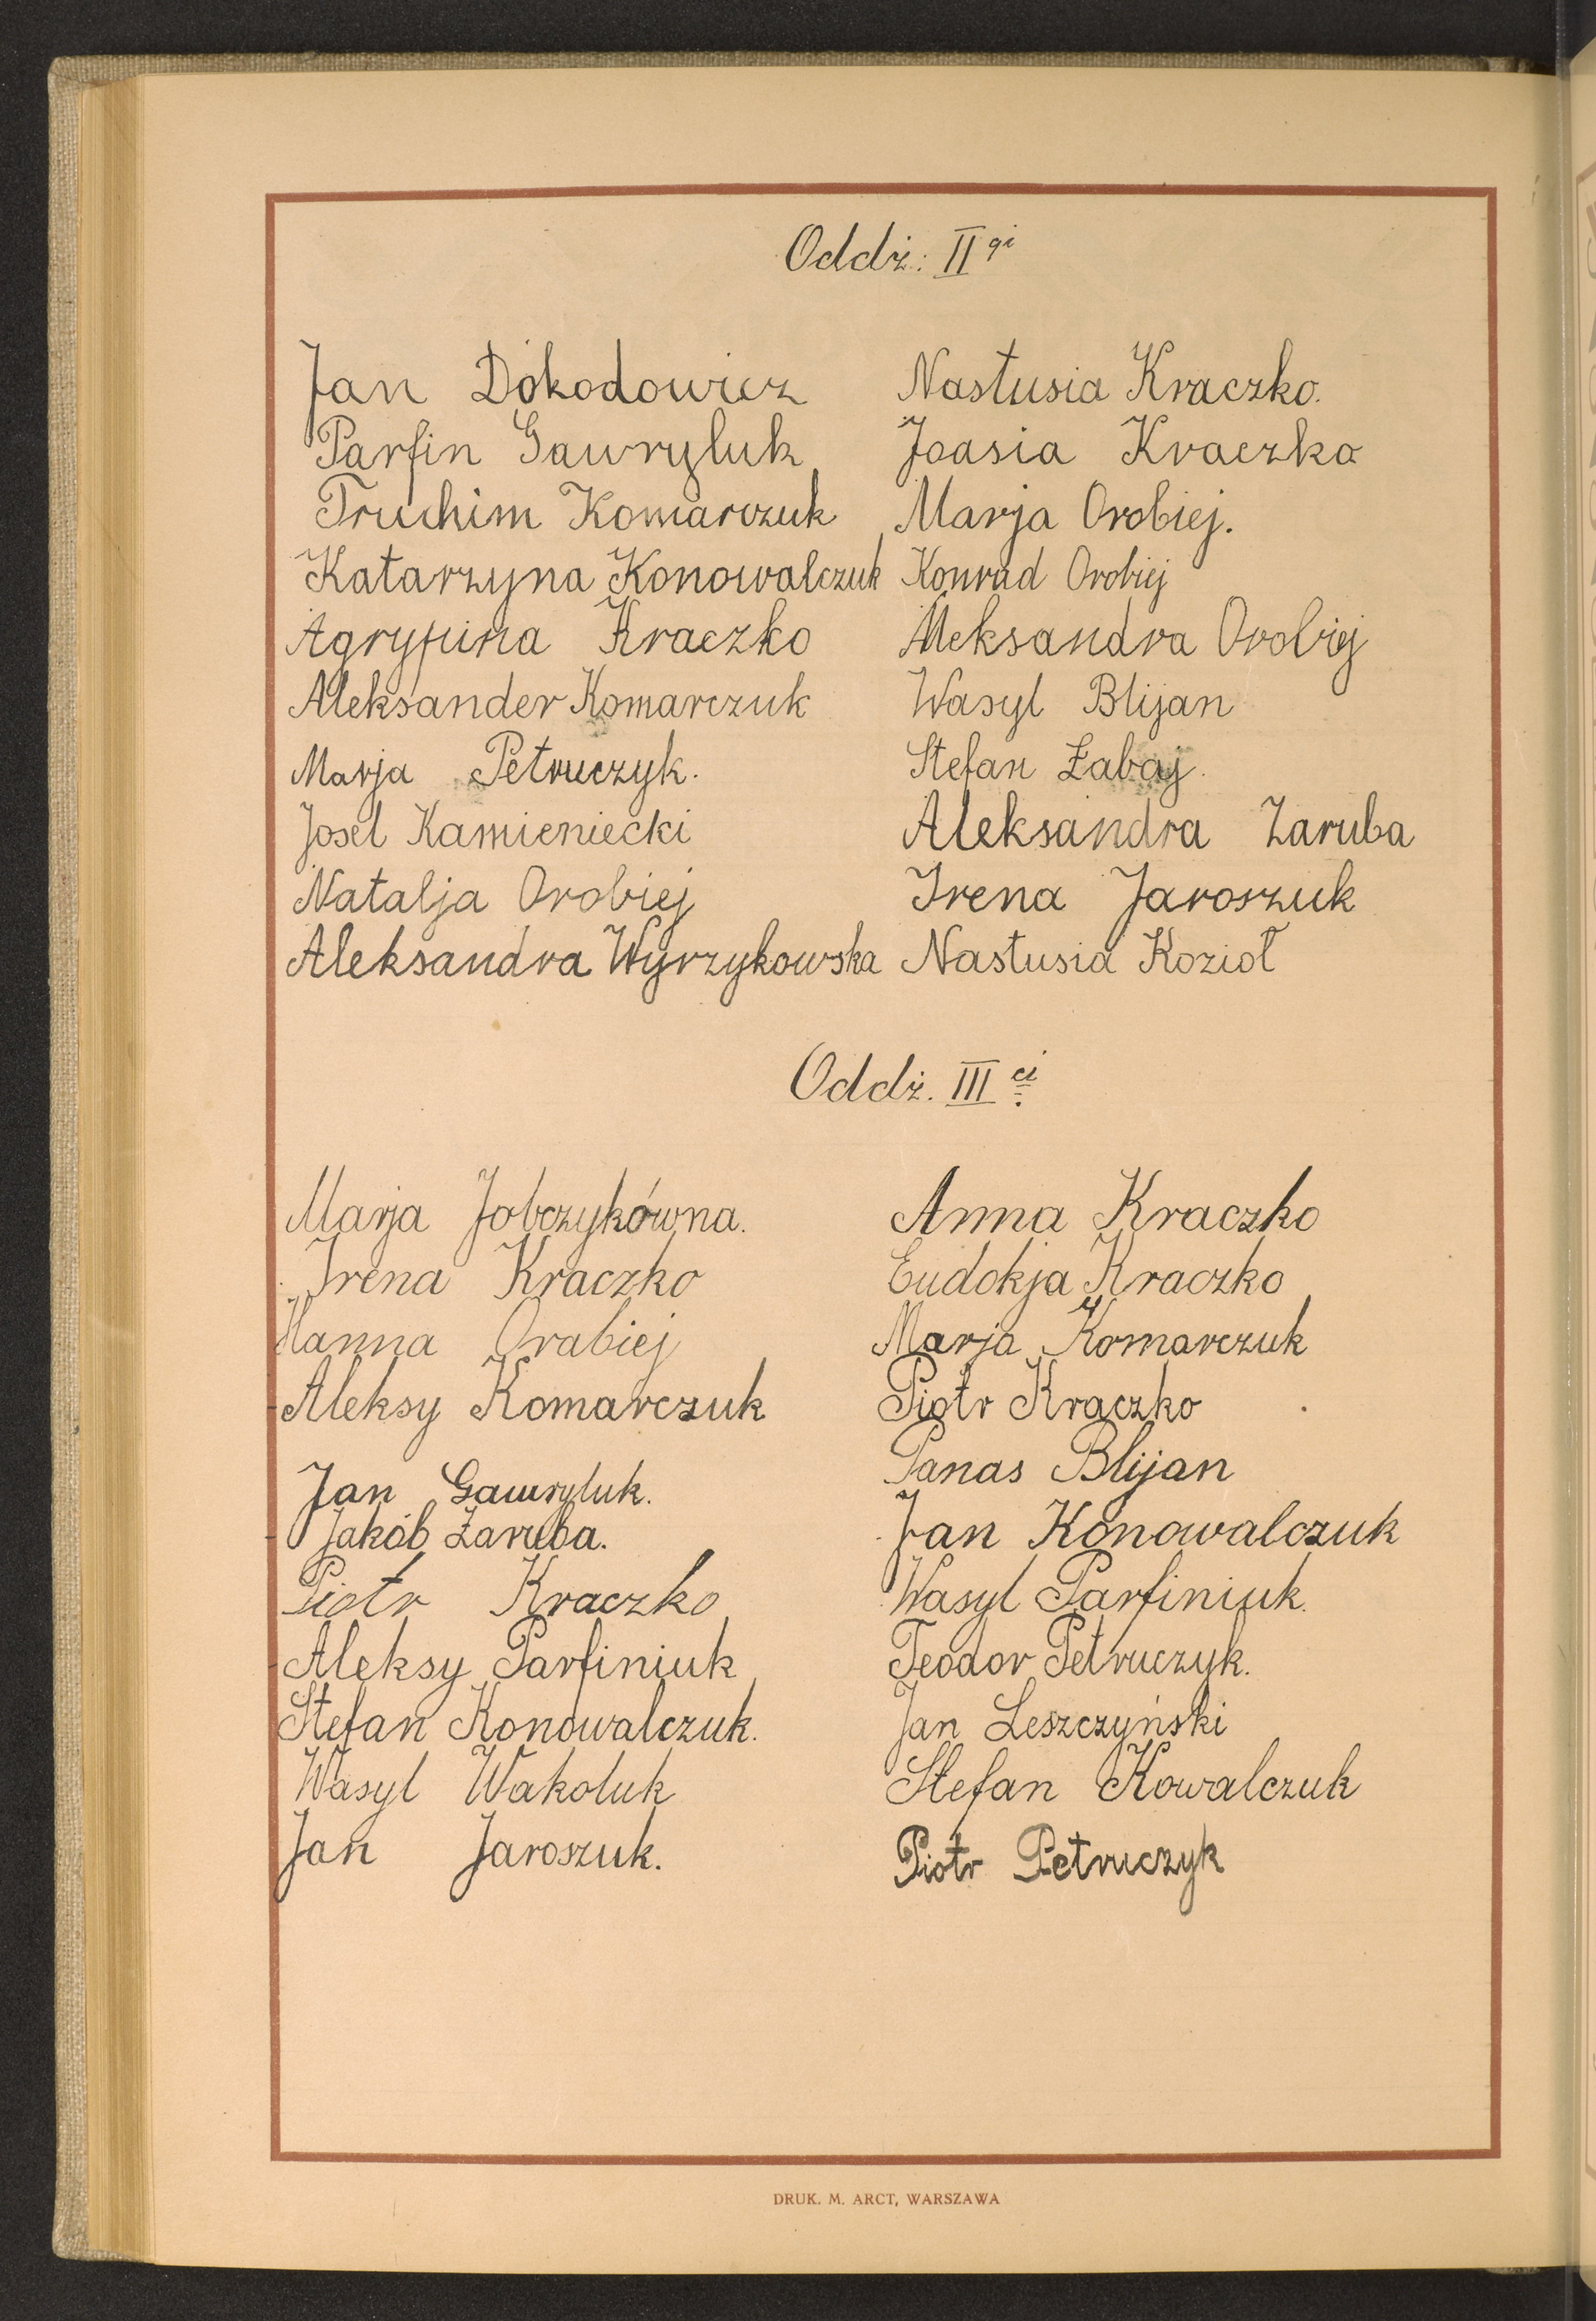 Oddż: II gi
Jan Dokodowicz
Parfin Gawryluk
Truchim Komarczuk
Katarzyna Konowalczuk
Agrypina Kraczko
Aleksander Komarczuk
Marja Petruczyk.
Josel Kamieniecki
Natalja Orobiej
Aleksandra Wyrzykowska
Nastusia Kraczko.
Joasia Kraczko
Marja Orobiej.
Konrad Orobiej
Aleksandra Orobiej
Wasyl Blijan
Stefan Żabaj.
Aleksandra Zaruba
Irena Jaroszuk
Nastusia Kozioł
Oddż. III ci
Marja Jobczykówna.
Irena Kraczko
Hanna Orabiej
Aleksy Komarczuk
Jan Gawryluk.
Jakób Żaruba.
Piotr Kraczko
Aleksy Parfiniuk
Stefan Konowalczuk.
Wasyl Wakoluk
Jan Jaroszuk.
Anna Kraczko
Eudokja Kraczko
Marja Komarczuk
Piotr Kraczko
Panas Blijan
Jan Konowalczuk
Wasyl Parfiniuk.
Teodor Petruczyk.
Jan Leszczyński
Stefan Kowalczuk
Piotr Petruczyk
DRUK. M. ARCT, WARSZAWA